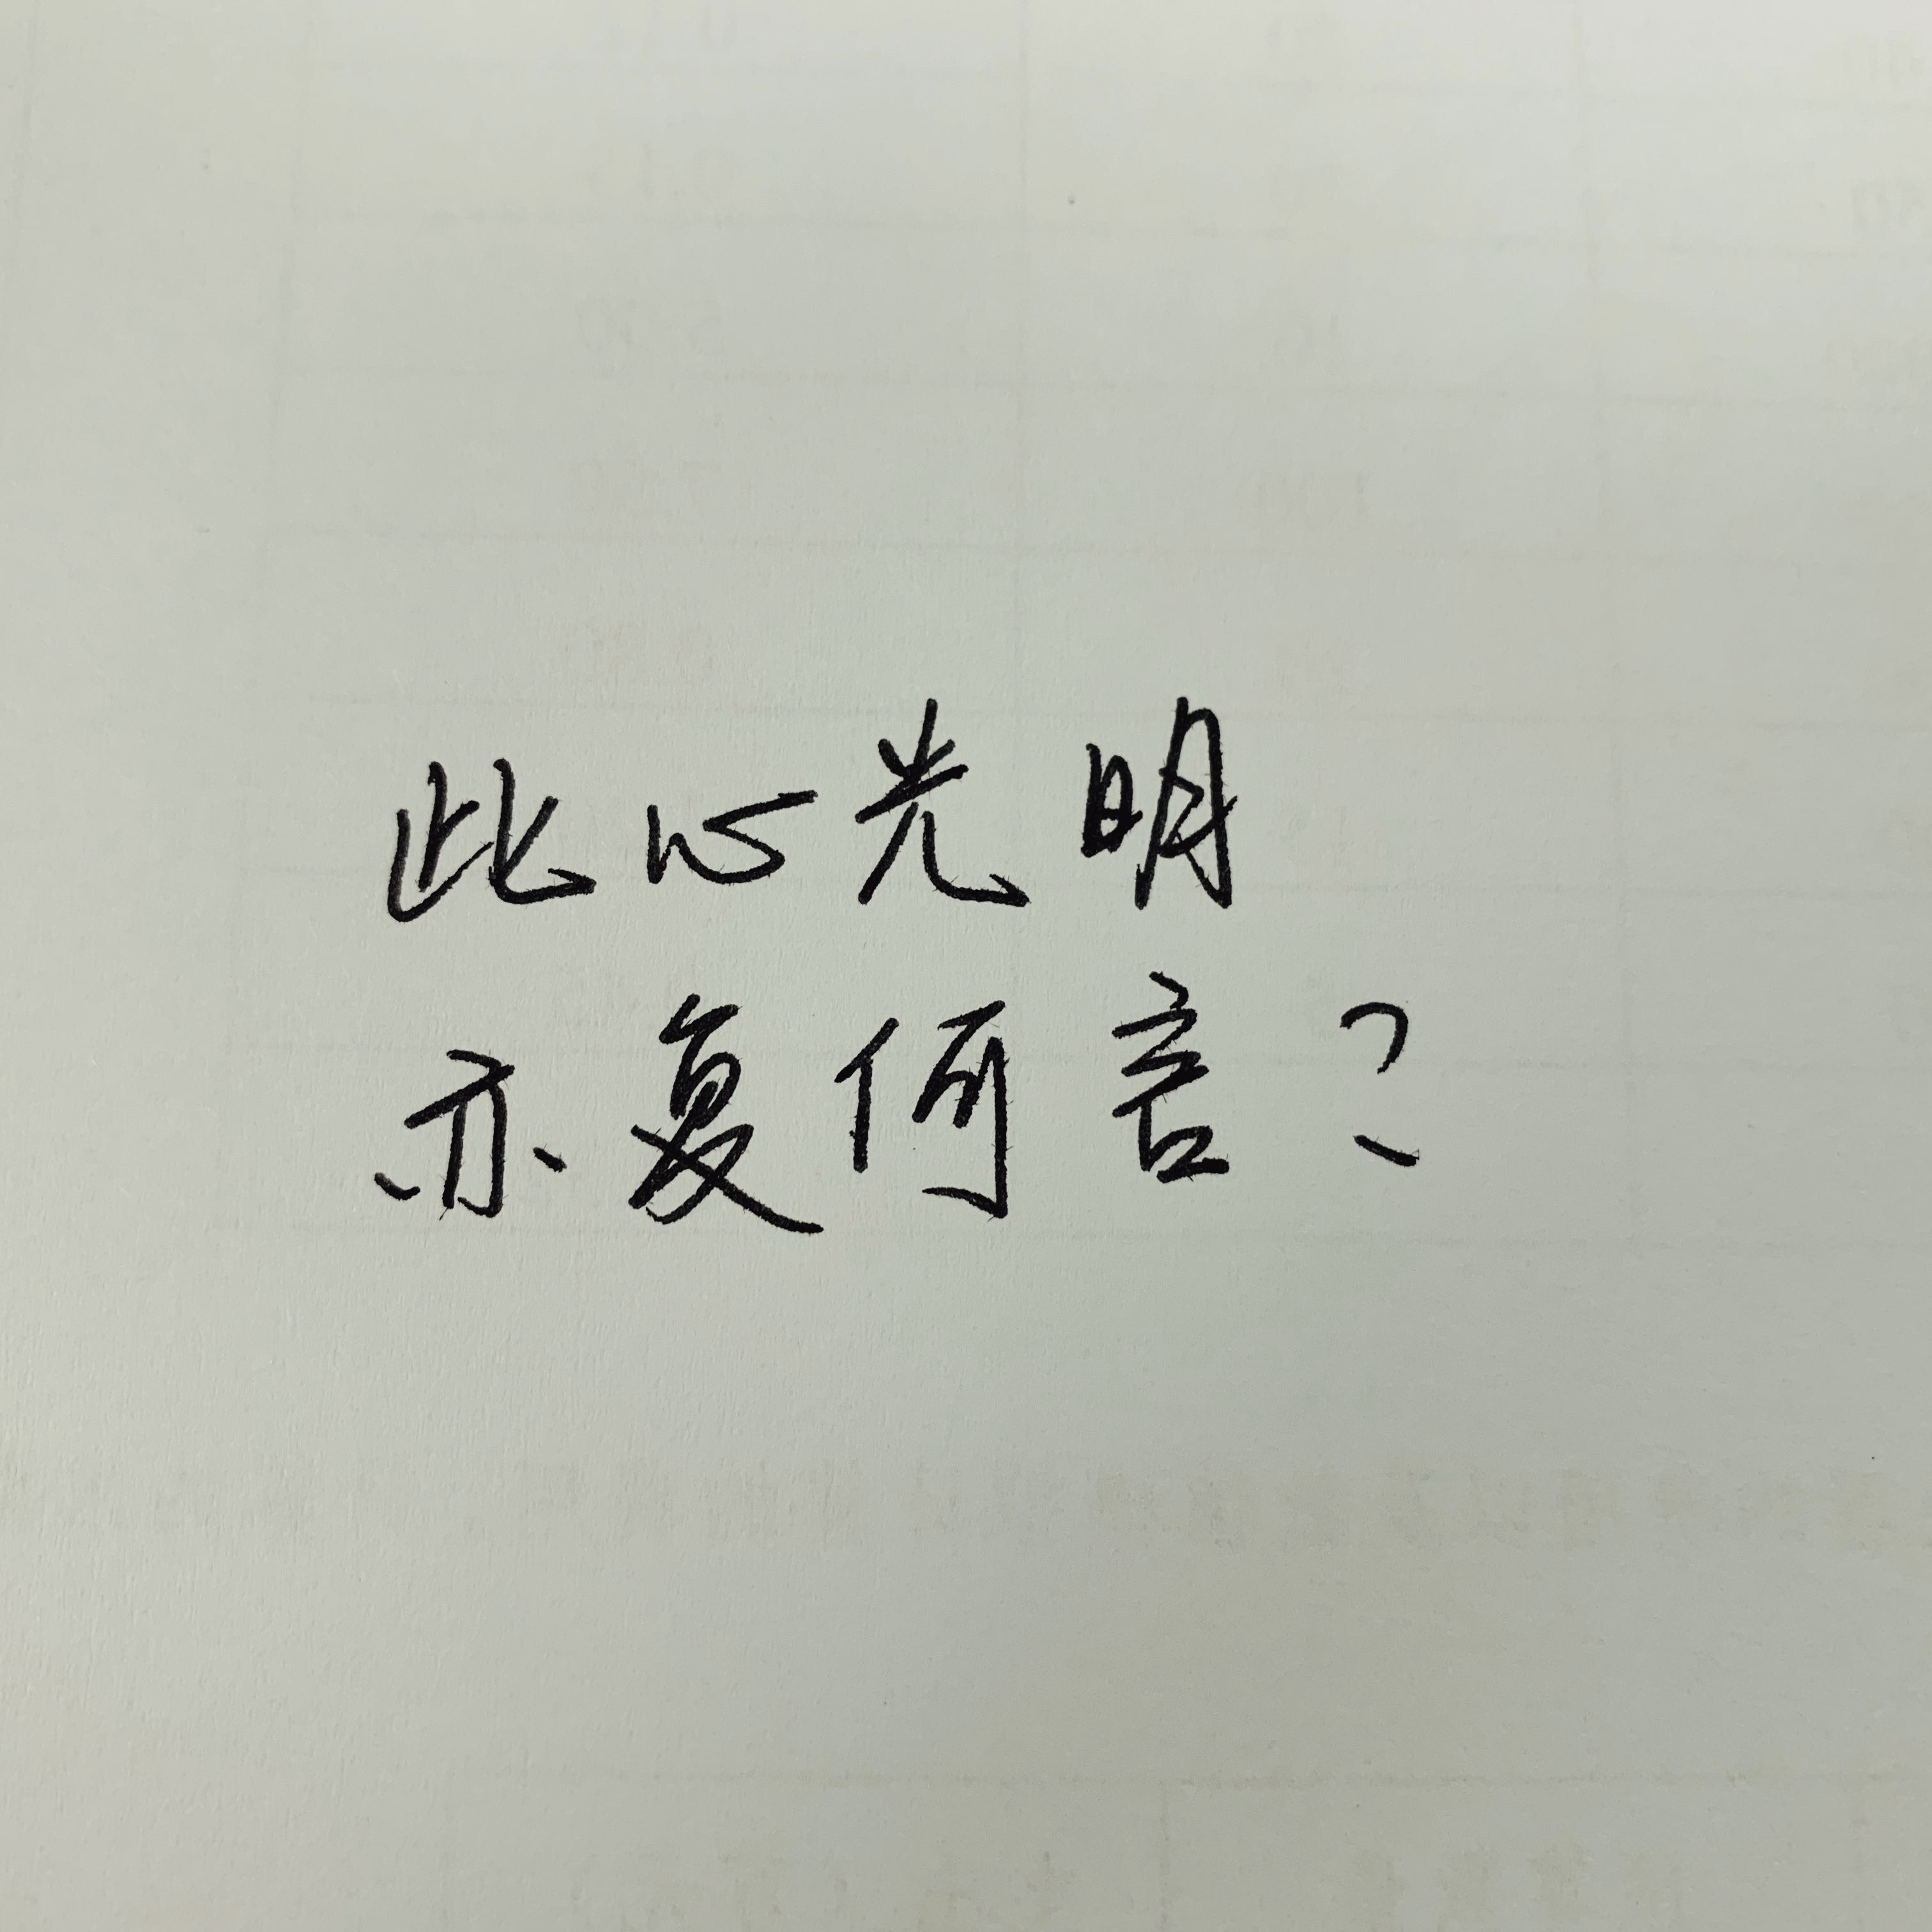 此心光明
亦复何言？